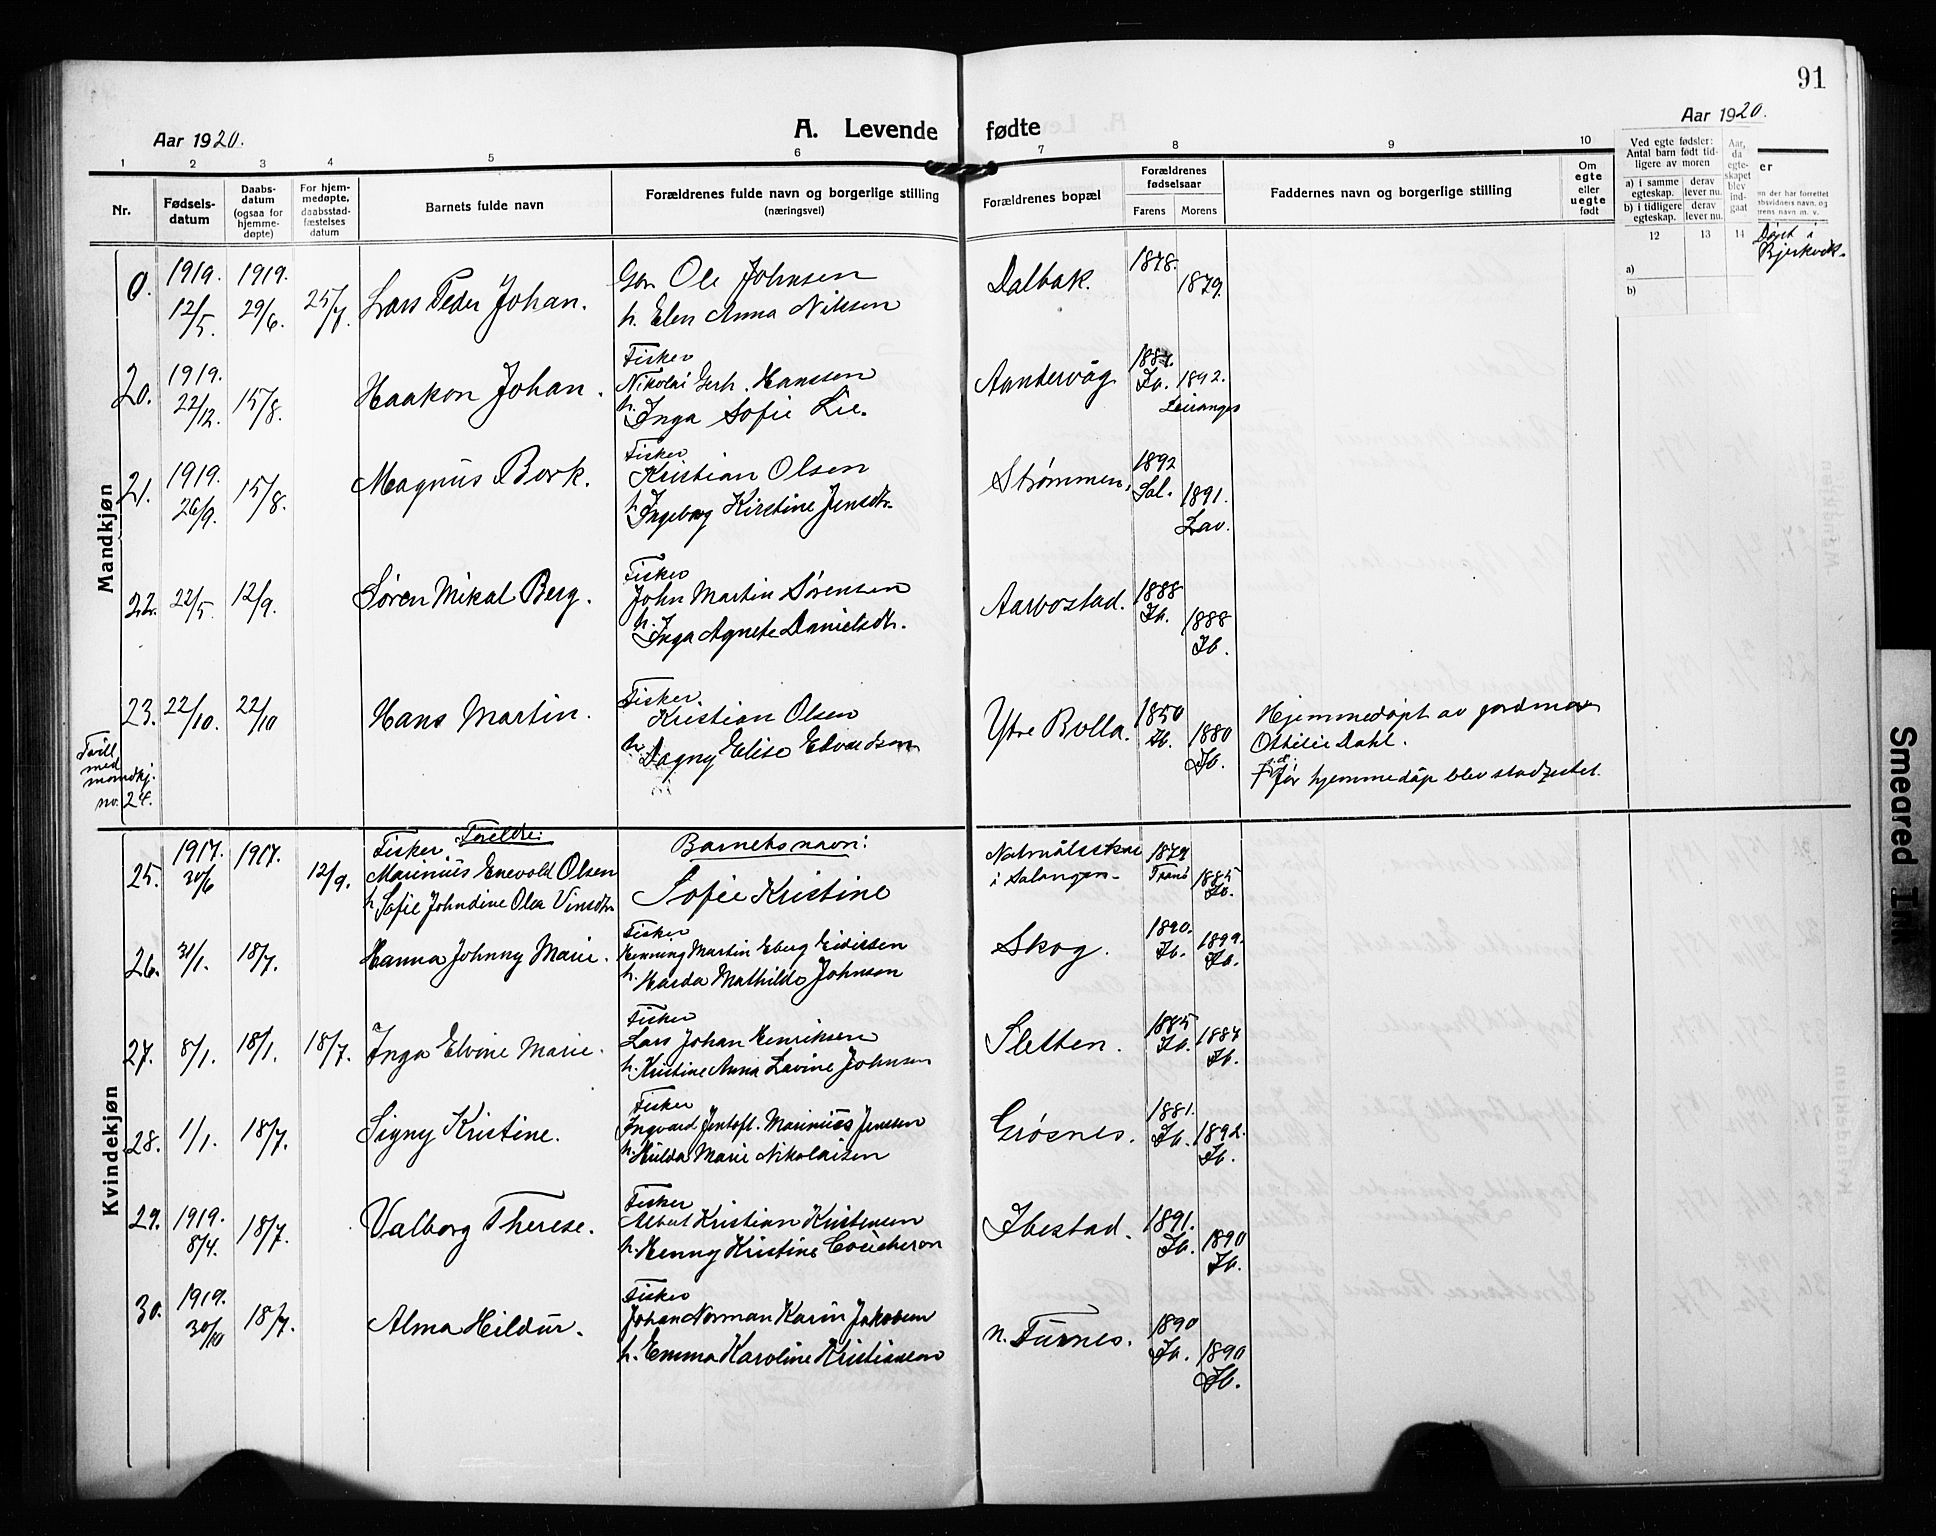 91
Aar 1920.
A. Levende fødte
Aar 1920.
1 2 3 4 5 6 7 8 9 10
Nr.
Fødsels-
datum
Daabs-
datum
(ogsaa for
hjemme-
døpte)
For hjem-
medøpte,
daabsstad-
fæstelses
datum
Barnets fulde navn
Forældrenes fulde navn og borgerlige stilling
(næringsvei)
Forældrenes bopæl
Forældrenes
fødselsaar
Farens Morens
Faddernes navn og borgerlige stilling
Om
egte
eller
uegte
født
Ved egte fødsler:
Antal barn født tid-
ligere av moren
a) i samme
egteskap.
derav
lever nu.
b) i tidligere
egteskap.
derav
lever nu.
Aar,
da
egte-
skapet
blev
ind-
gaat
12 13 14
a)
b)
er
en der har forrettet
absvidners navn, og
rens navn m. v.
Døpt i
Bjerkvik.
Mandkjøn
0. 1919. 12/5. 1919. 29/6. 25/7. Lars Peder Johan.
Ole Johnsen
h. Elen Anna Nilsen
Dalbak. 1878. 1879.
20. 1919. 22/12. 15/8. Haakon Johan.
Fisker
Nikolai Gerh. Hanssen
h. Inga Sofie Lie.
Aandervåg 1887. Ib. 1892. Leiranger
21. 1919. 26/9. 15/8. Magnus Bork.
Fisker
Kristian Olsen
h. Ingeborg Kirstine Jensdtr.
Strømmen. 1892 Sal. 1891. Lav.
22. 22/5. 12/9. Søren Mikal Berg.
Fisker
John Martin Sørensen
h. Inga Agnete Danielsdtr.
Aarbostad. 1888 Ib. 1888 Ib.
23. 22/10. 22/10 Hans Martin.
Fisker
Kristian Olsen
h. Dagny Elise Edvardsen
Ytre Bolla. 1850 Ib. 1880 Ib.
Hjemmedøpt av jordmor
Ottilie Dahl.
† før hjemmedåp blev stadfestet.
Tvill.
med
mandkj.
no. 24.
Kvindekjøn
25. 1917. 30/6 1917. 12/9.
Foreldre:
Fisker
Marinius Enevold Olsen
h. Sofie Johndine Olea Vinsdtr.
Barnets navn:
Sofie Kristine
i Salangen. 1879 Tranø 1885 Ib.
26. 31/1. 18/7. Hanna Johnny Marie.
Fisker
Henning Martin Eberg Eidissen
h. Harda Mathilde Johnson
Skog. 1890. Ib. 1899. Ib.
27. 8/1. 18/1. 18/7. Inga Elvine Marie.
Fisker
Lars Johan Henriksen
h. Kristine Anna Lavine Johnsen
Sletten. 1885 Ib. 1887 Ib.
28. 1/1. 18/7. Signy Kristine.
Fisker
Ingvard Jentoft Marinius Jensen
h. Hulda Marie Nikolaisen
Grøsnes. 1881. Ib. 1892. Ib.
29. 1919. 8/4. 18/7. Valborg Therese.
Fisker
Albert Kristian Kristensen
h. Henny Kristine Coucheron
Ibestad. 1891. Ib. 1890 Ib.
30. 1919. 30/10 18/7. Alma Hildur.
Fisker
Johan Norman Karin Jakobsen
h. Emma Karoline Kristiansen
n. Furnes. 1890 Ib. 1890 Ib.
Smeared Ink